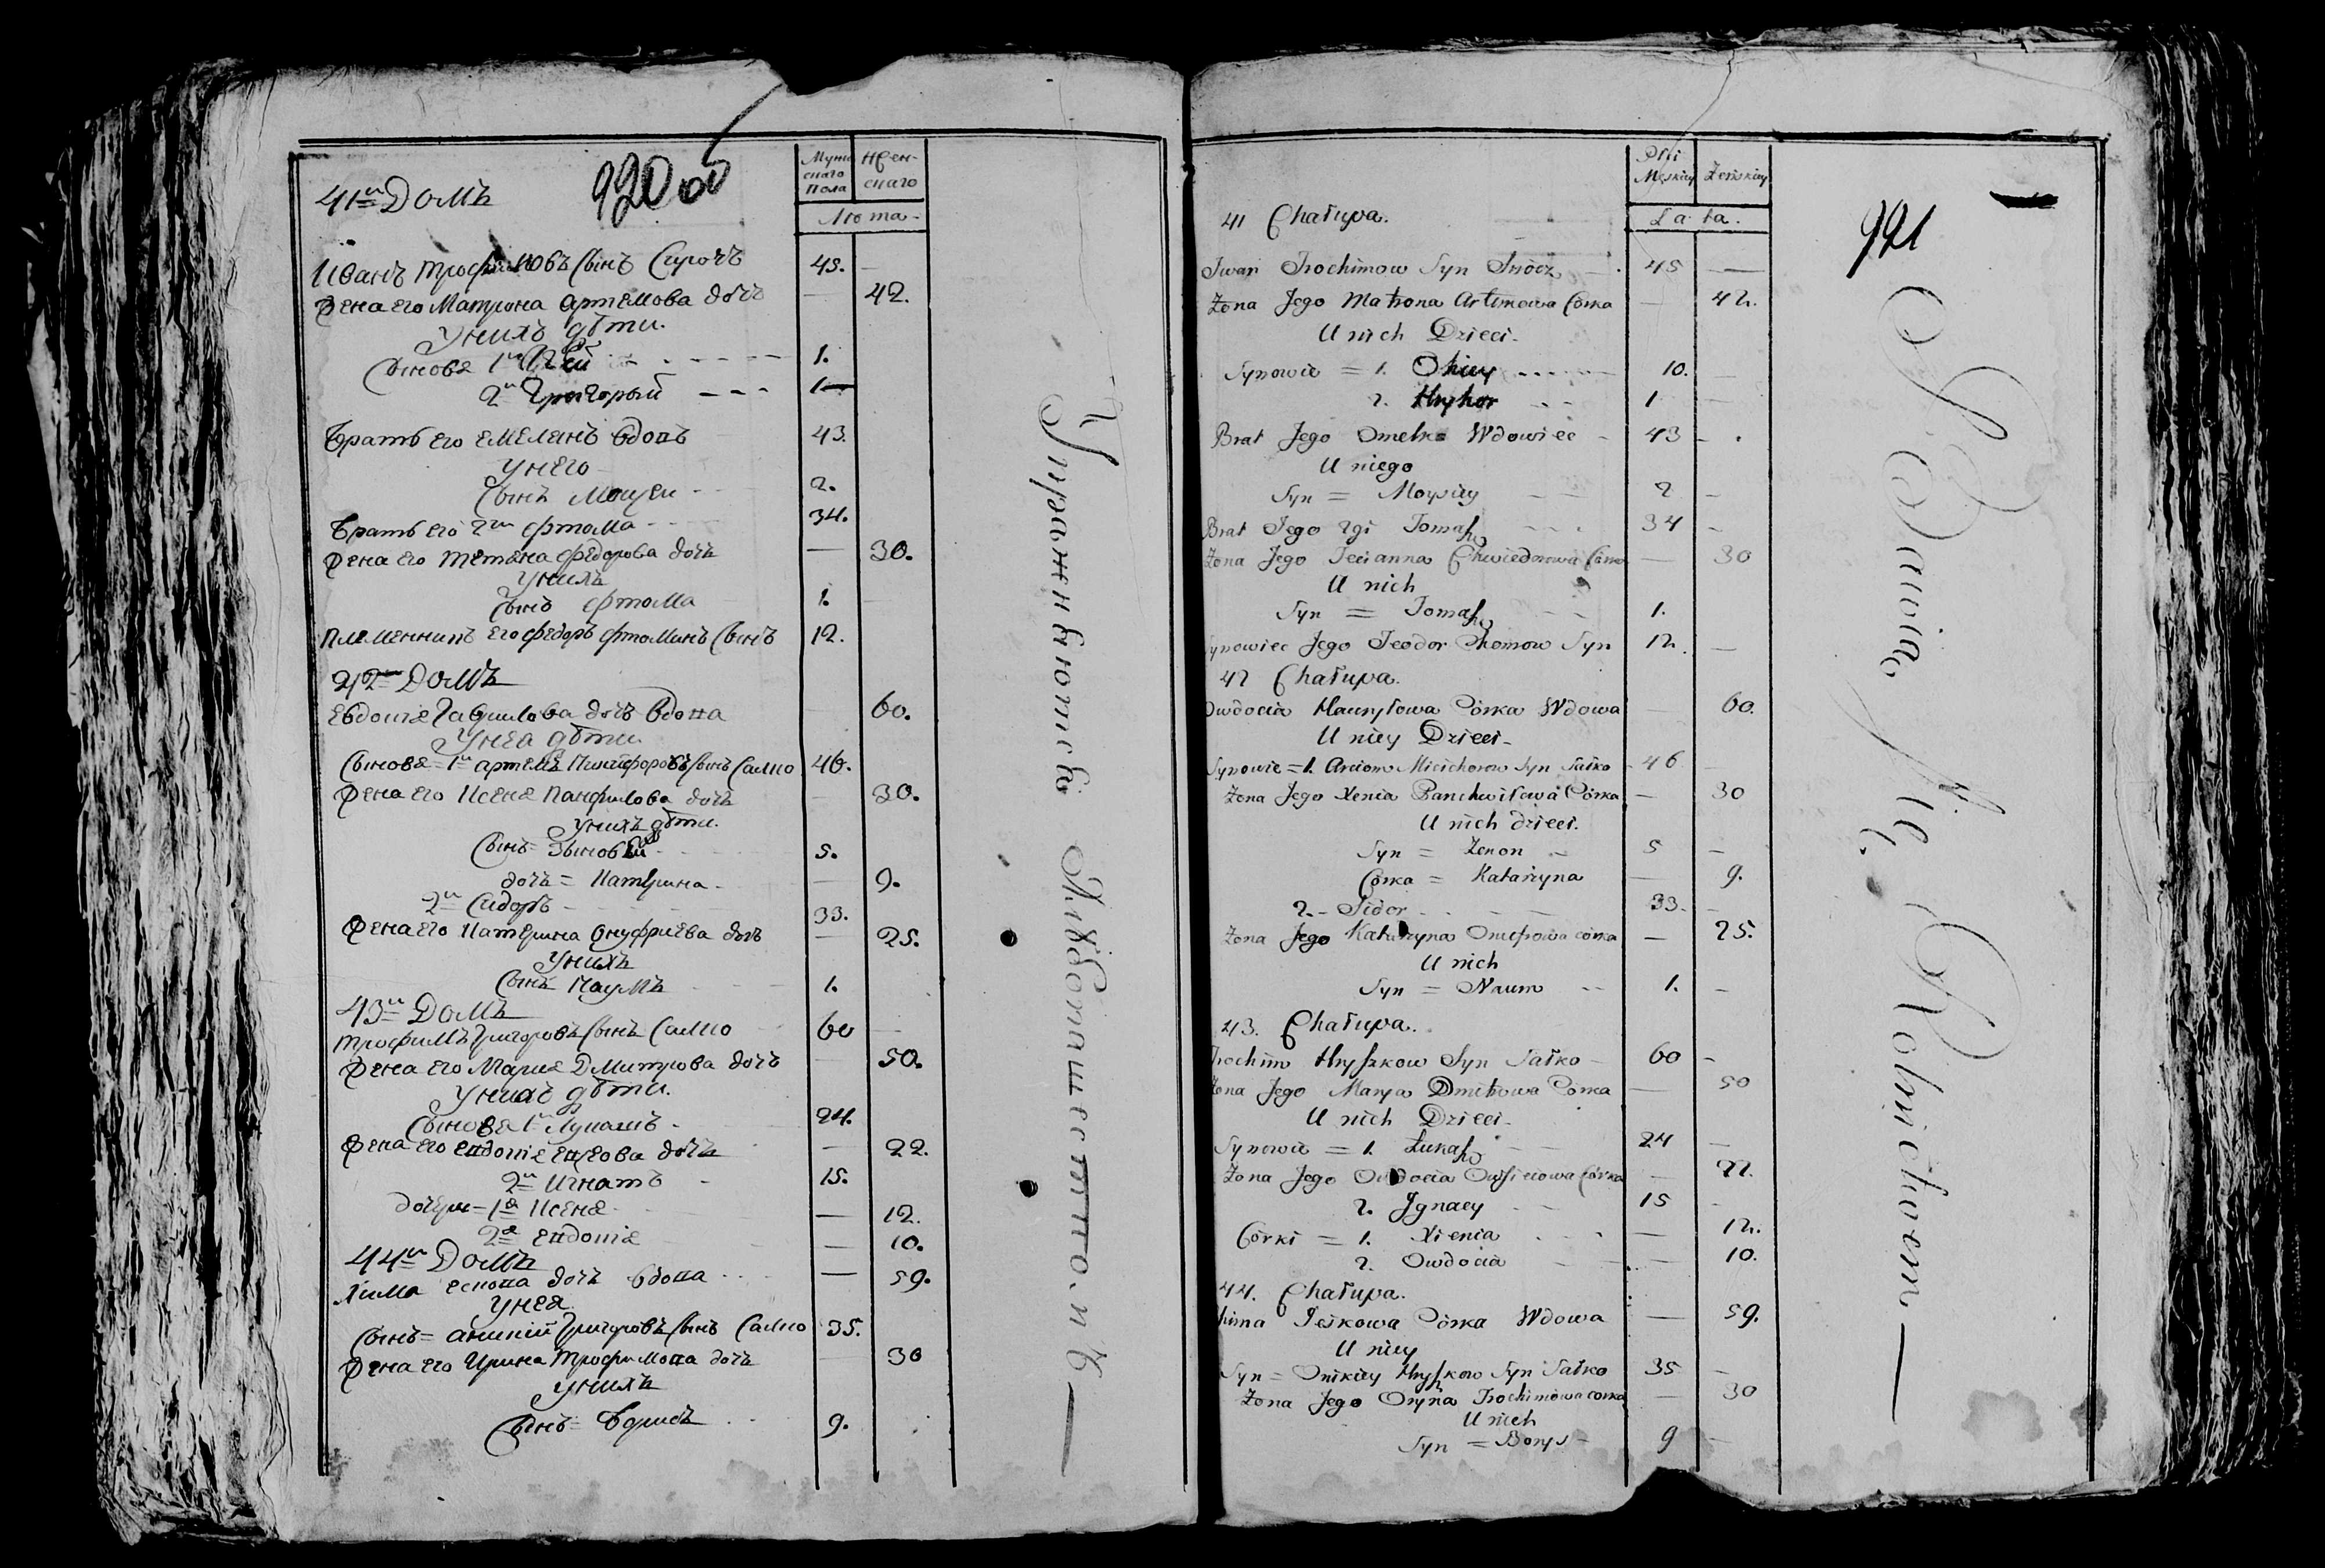 920
41й Домъ
Мужескаго Пола
Женскаго
Лѣта
Иванъ Трофимовъ сынъ 45.
Жена его Матрона Артемова дочь 42.
У нихъ дѣти.
Сынове 1й 1.
2й Григорый 1
Братъ его Емелянъ вдовъ 43.
У него
Сынъ Моисеи 2.
Братъ его 2й Фтома 34.
Жена его Тетяна Федорова дочь 30.
У нихъ
Сынъ Фтома 1.
Племенникъ его Федоръ Фтоминъ сынъ 12.
42й Домъ
Евдокія Гаврилова дочь вдова 60.
У нея дѣти
Сынове 1й Артемъ сынъ Салко 46.
Жена его Ксеня Панфилова дочь 30.
У нихъ дѣти.
Сынъ = Зыновъй 5.
дочь = Катерина 9.
2й Сидоръ 33.
Жена его Катерина Онуфриева дочь 25.
У нихъ
Сынъ Наумъ 1.
43й Домъ
Трофимъ Григоровъ сынъ Салко 60
Жена его Мария Дмитрова дочь 50.
У нихъ дѣти.
Сынове 1й Лукашъ 24.
Жена его Евдокія дочь 22.
2й Игнатъ 15.
Дочери = 1я Ксеня 12.
2я Евдокія 10.
44й Домъ
Хима Ескова дочь вдова 59.
У нея
Сынъ = Аникій Григоровъ сынъ Салко 35.
Жена его Ирина Трофимова дочь 30
У нихъ
Сынъ = Борисъ 9.
Упражняются Хлѣбопашествомъ
921
Płci
Męskiey
Żeńskiey
Lata.
41 Chałupa.
Iwan Trochimow Syn 45
Żona Jego Matrona Artimowa Córka 42.
U nich Dzieci
Synowie = 1. 10.
2. Hryhor 1
Brat Jego Omelko Wdowiec 43
U niego
Syn = Moysiey 2
Brat Jego 2gi Tomasz 34
Żona Jego Tecianna Chwiedorowa Córka 30
U nich
Syn = Tomasz 1.
Synowiec Jego Teodor Chomow Syn 12.
42 Chałupa.
Owdocia Hawryłowa Córka Wdowa 60.
U niey Dzieci
Synowie = 1. Arciom Micichorow Syn Sałko 46
Żona Jego Xenia Panchwiłowa Córka 30
U nich dzieci.
Syn = Zenon 5
Córka = Katarzyna 9.
2. Sidor 33.
Żona Jego Katarzyna Onufrowa córka 25.
U nich
Syn = Naum 1.
43. Chałupa.
Trochim Hryszkow Syn Sałko 60
Żona Jego Marya Dmitrowa Córka 50
U nich Dzieci
Synowie = 1. Łukasz 24
Żona Jego Owdocia Owsieiowa Córka 22.
2. Jgnacy 15
Córki = 1. Xienia 12.
2. Owdocia 10.
44. Chałupa.
Chima Jeśkowa Córka Wdowa 59.
U niey
Syn = Onikiey Hryszkow Syn Sałko 35
Żona Jego Oryna Trochimowa corka 30
U nich
Syn = Borys 9
Bawią Się Rolnictwem